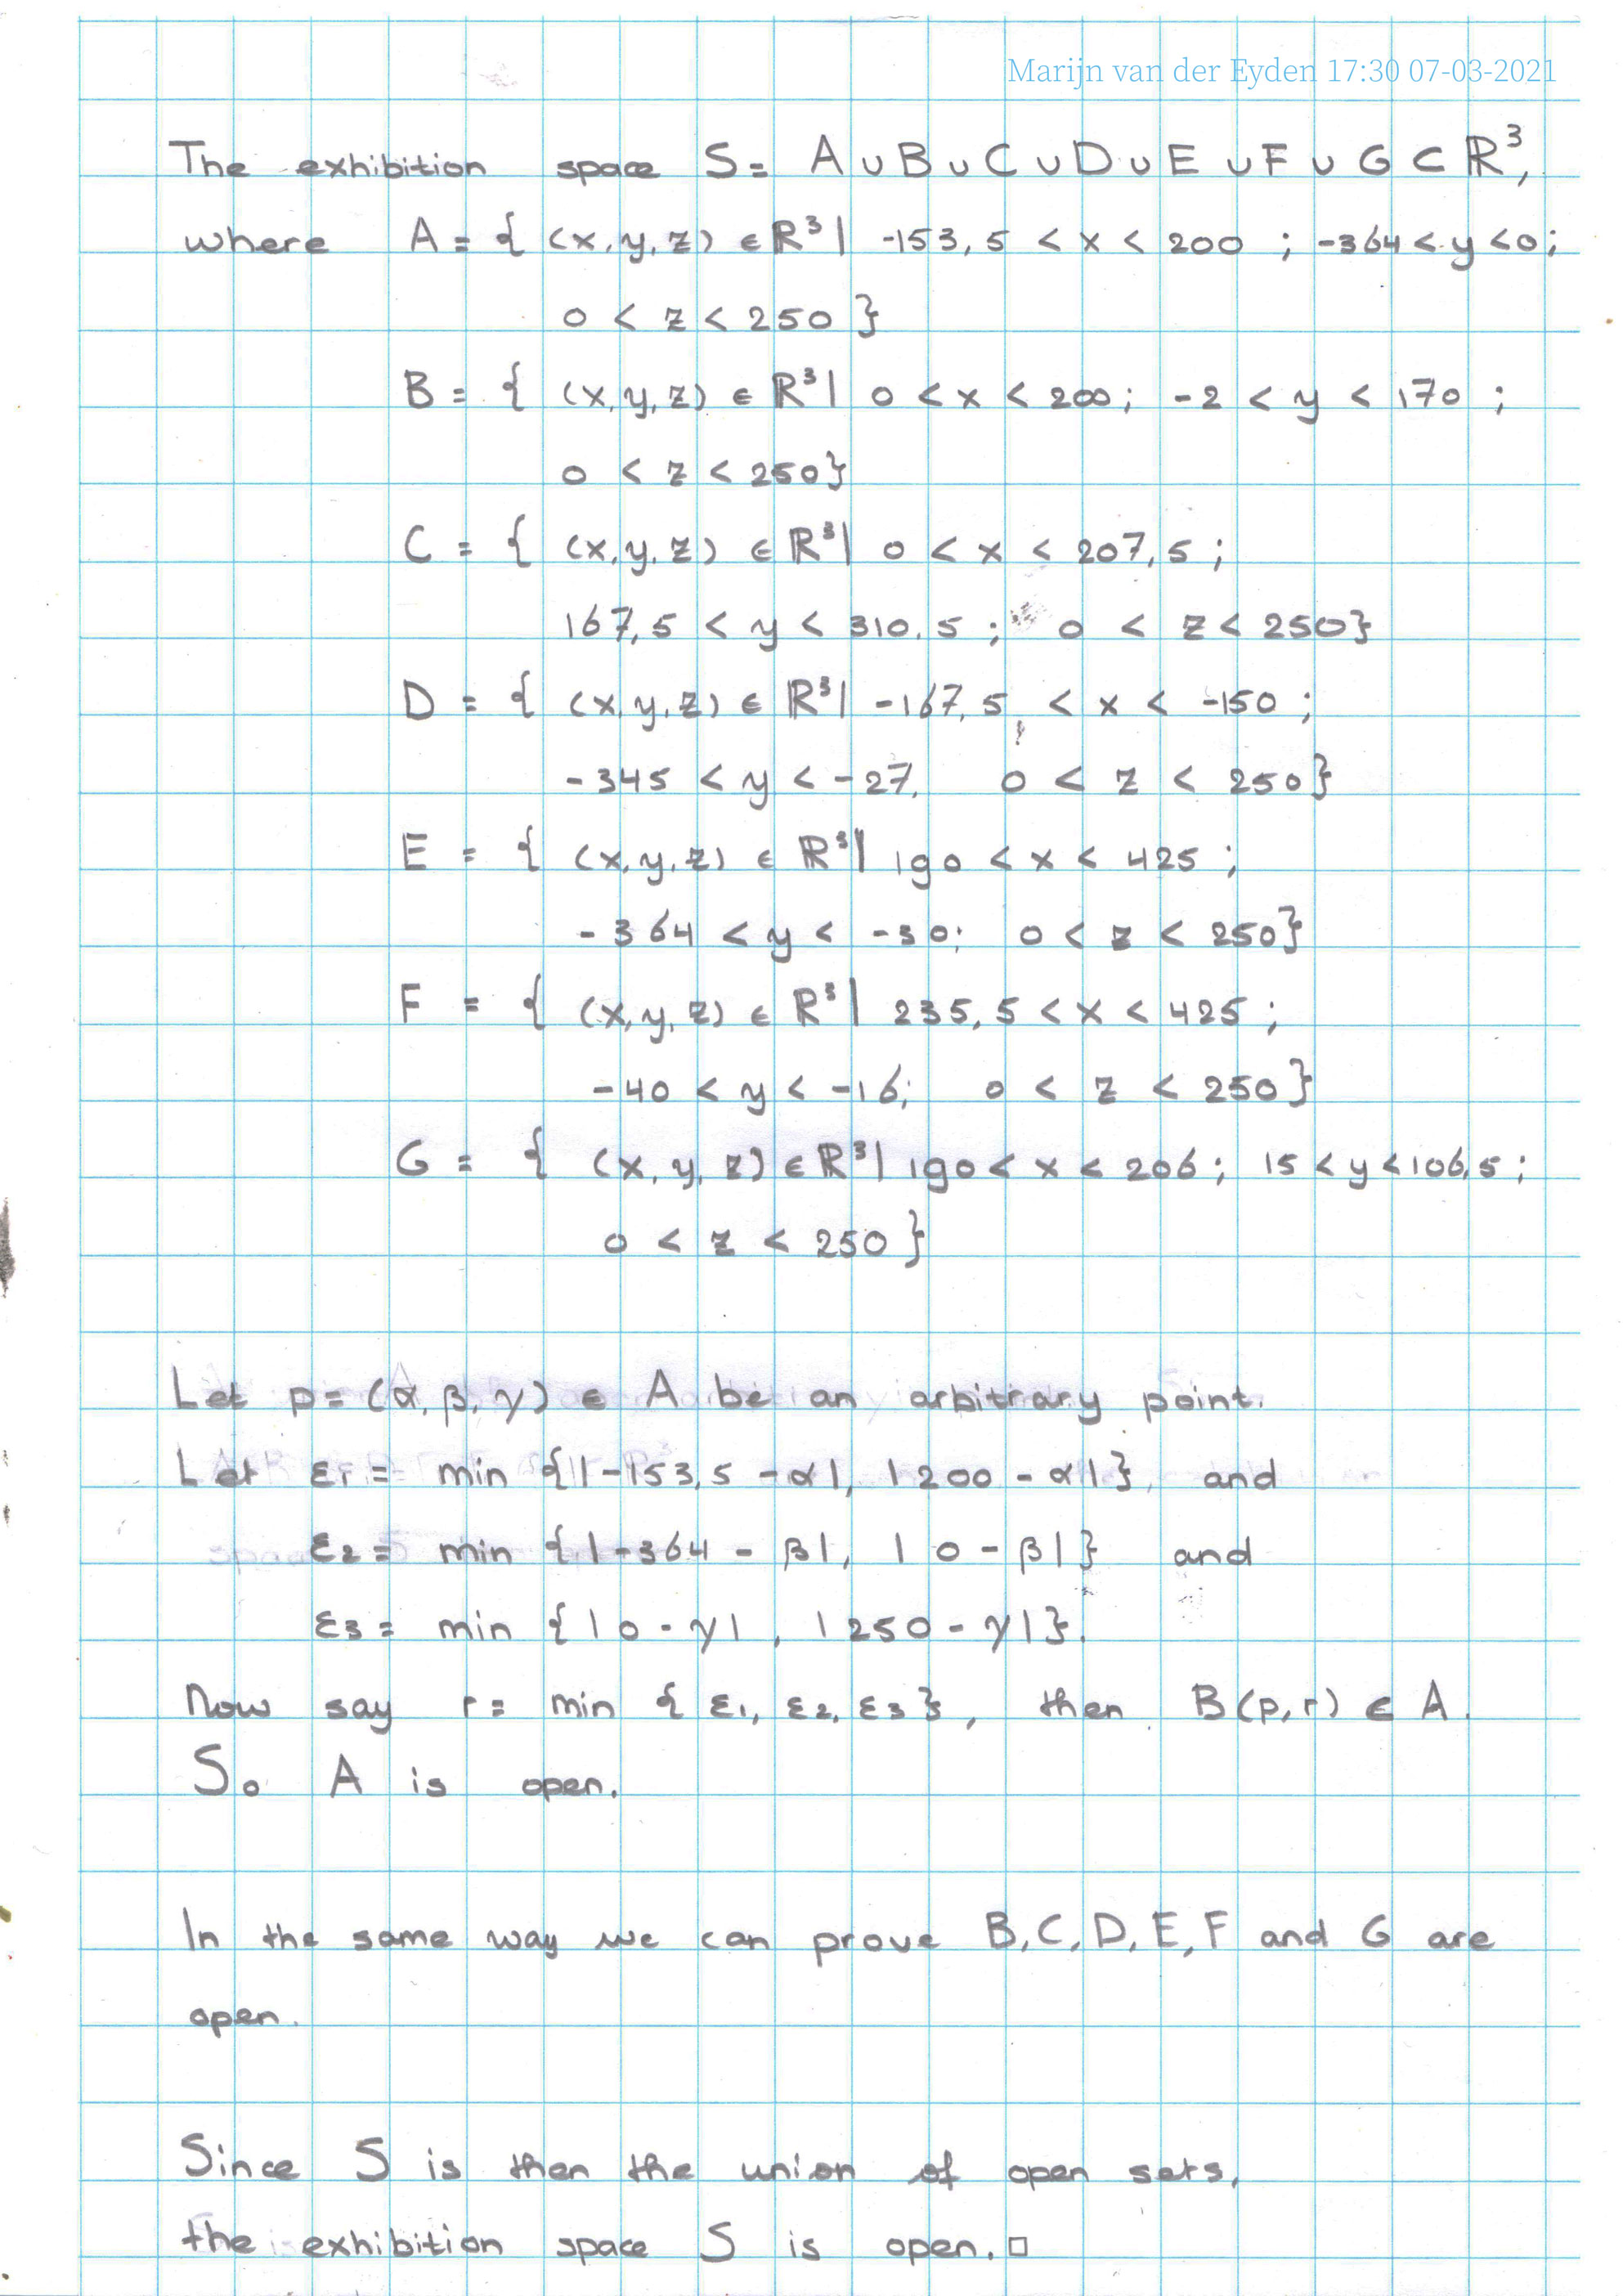 Marijn van der Eyden 17:30 07-03-2021
The exhibition space S = A ∪ B ∪ C ∪ D ∪ E ∪ F ∪ G ⊂ ℝ³,
where A = { (x, y, z) ∈ ℝ³ | -153,5 < x < 200 ; -364 < y < 0;
0 < z < 250 }
B = { (x, y, z) ∈ ℝ³ | 0 < x < 200; -2 < y < 170 ;
0 < z < 250}
C = { (x, y, z) ∈ ℝ³ | 0 < x < 207,5 ;
167,5 < y < 310,5 ; 0 < z < 250}
D = { (x, y, z) ∈ ℝ³ | -167,5 < x < -150 ;
-345 < y < -27, 0 < z < 250}
E = { (x, y, z) ∈ ℝ³ | 190 < x < 425 ;
-364 < y < -30; 0 < z < 250}
F = { (x, y, z) ∈ ℝ³ | 235,5 < x < 425 ;
-40 < y < -16; 0 < z < 250}
G = { (x, y, z) ∈ ℝ³ | 190 < x < 206; 15 < y < 106,5 ;
0 < z < 250 }
Let p = (α, β, γ) ∈ A be an arbitrary point.
Let ε1 = min {|-153,5 - α|, |200 - α|}, and
ε2 = min {|-364 - β|, |0 - β|} and
ε3 = min {|0 - γ|, |250 - γ|}.
Now say r = min {ε1, ε2, ε3}, then B(p,r) ∈ A.
So A is open.
In the same way we can prove B, C, D, E, F and G are
open.
Since S is then the union of open sets,
the exhibition space S is open. □